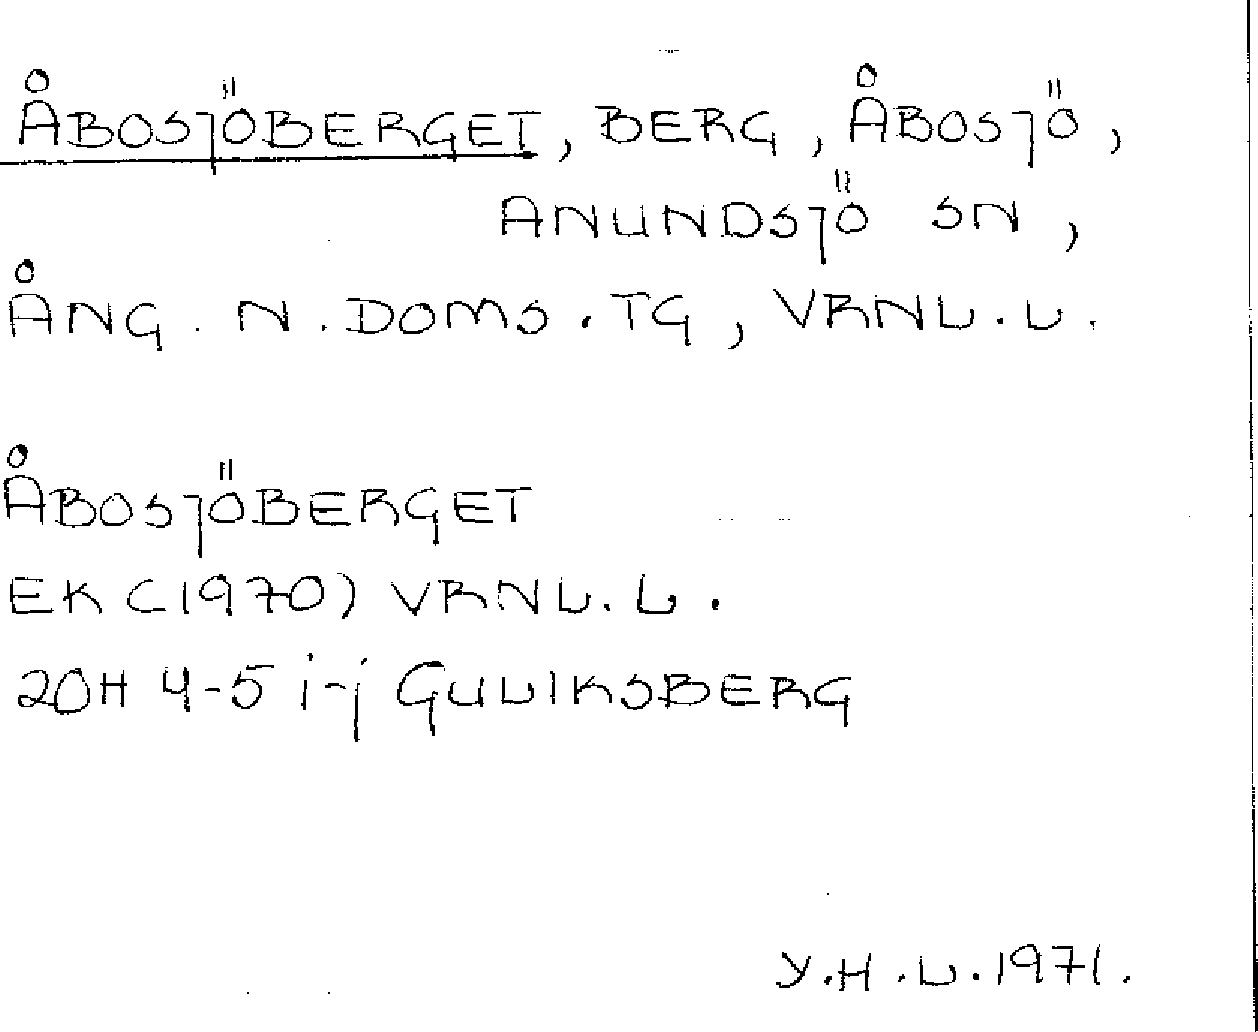 ÅBOSJÖBERGET, BERG, ÅBOSJÖ,
ANUNDSJÖ SN,
ÅNG. N. DOMS. TG, VRNL. L.
ÅBOSJÖBERGET
EK (1970) VRNL. L.
20H 4-5 i-j GULIKSBERG
Y.H.L. 1971.